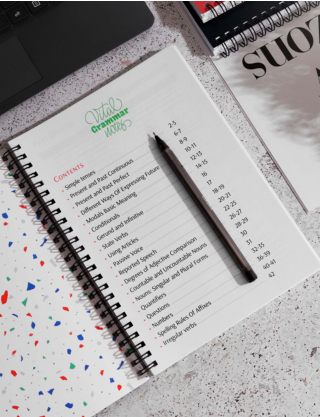 Vital
Grammar
notes
CONTENTS
Simple tenses 2-5
Present and Past Continuous 6-7
Present and Past Perfect 8-9
Different Ways Of Expressing Future 10-11
Modals Basic Meaning 12-13
Conditionals 14-15
Gerund and Infinitive 16
State Verbs 17
Using Articles 18-19
Passive Voice 20-21
Reported Speech 22-25
Degrees of Adjective Comparison 26-27
Countable and Uncountable Nouns 28-29
Nouns: Singular and Plural Forms 30
Quantifiers 31
Questions 32-35
Numbers 36-39
Spelling Rules Of Affixes 40-41
Irregular verbs 42